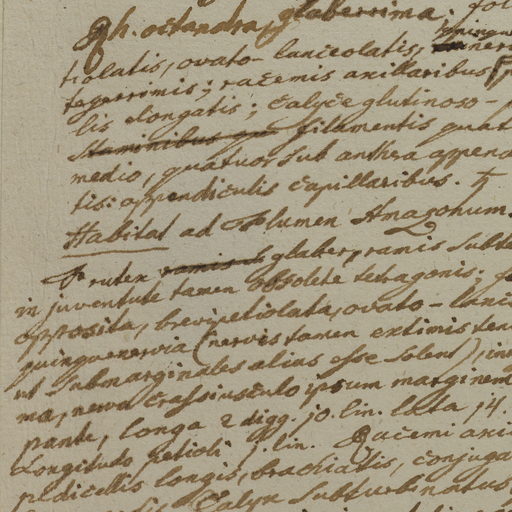 Rh. octandra, glaberrima; fol
tiolatis, ovato-lanceolatis, quinque
tegerrimis; racemis axillaribus
lis elongatis; calyce glutinoso-
Staminibus filamentis quat
medio, quatuor sub anthera append
tis: appendiculis capillaribus. ♄
Habitat ad Flumen Amazonum.
Frutex ramis glaber, ramis subte
in juventute tamen obsolete tetragonis; fo
opposita, brevipetiolata, ovato-lance
quinquenervia (nervis tamen extimis ten
ut submarginales alias esse solent), in
ma, nervo crassiusculo ipsum marginem
pante, longa 2 digg. 10. lin. lata 14.
Longitudo petioli 1. lin. Racemi axi
pedicellis longis, brachiatis, conjuga
Calyx subturbinatus